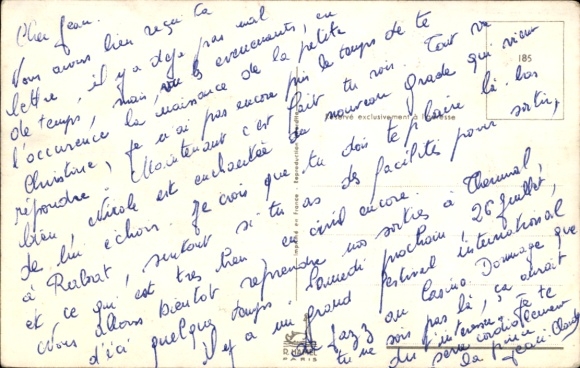 Cher Jean.
Vous avons bien reçu ta
lettre, il y a déjà pas mal
de temps, mais, vu les évenements, en
l'occurence la naissance de la petite
Christine, je n'ai pas encore pris le temps de te
répondre. Maintenant c'est fait tu vois. Tout va
bien, Nicole est enchantée du nouveau grade qui vient
de lui echoir. Je crois que tu dois te plaire là bas
à Rabat, surtout si tu as des facilités pour sortir,
et ce qui est très bien en civil encore.
Nous allons bientôt reprendre nos sorties à Thermal,
d'ici quelque temps. Samedi prochain, 26 Juillet,
il y a un grand festival international
de Jazz au Casino. Dommage que
tu ne sois pas là, ça aurait
du t'interesser. Je te
serre cordialement
la pince
Jean Claude
185
Réservé exclusivement à l'adresse
Imprimé en France - Reproduction interdite
PARIS